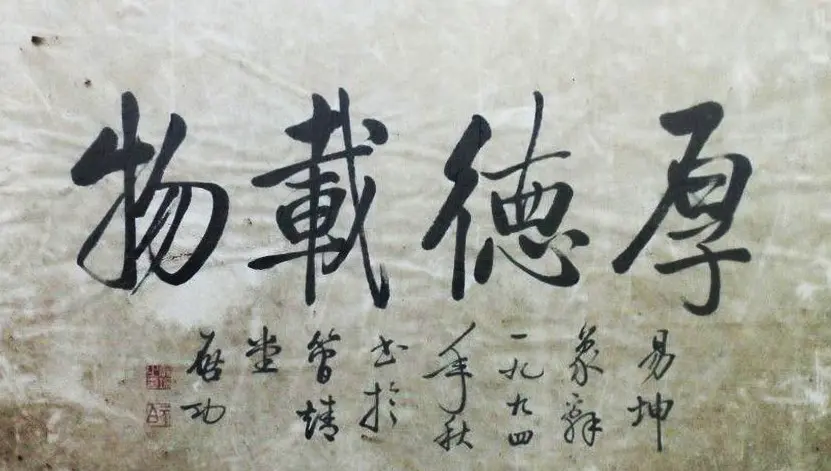 厚德載物
易坤
象辞
一九九四
年秋
書於
堂
啓功